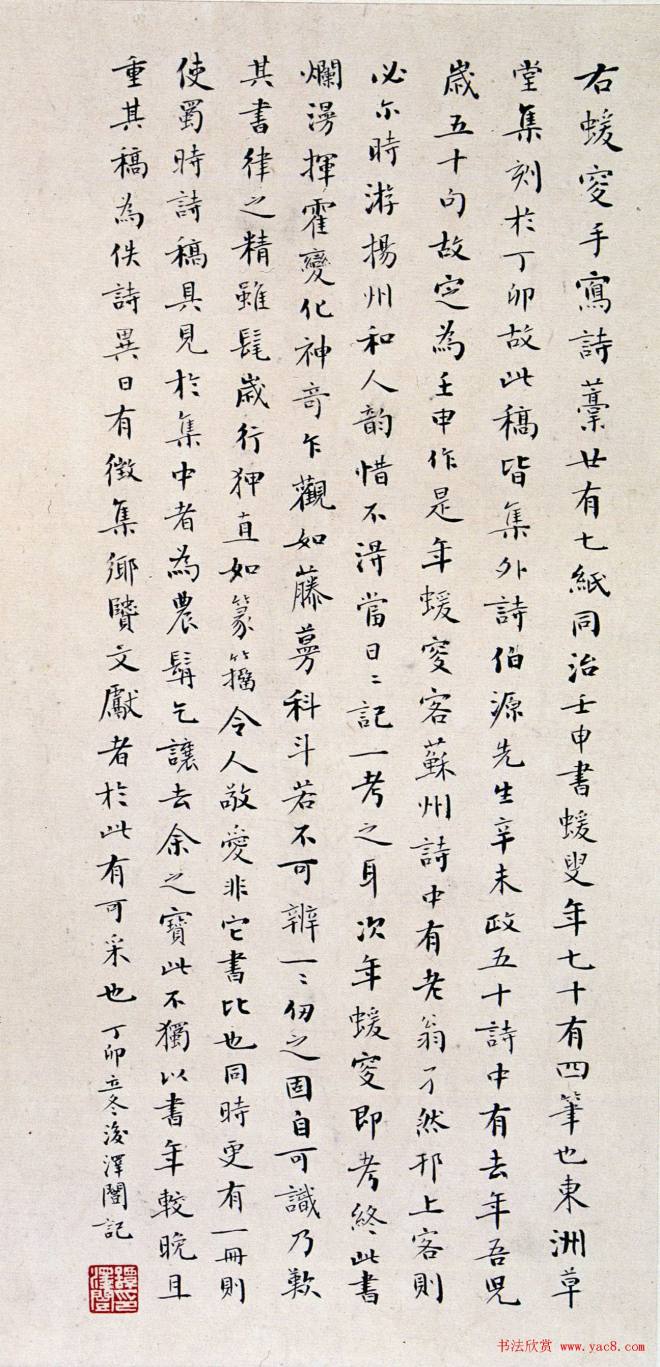 右蝯叜手寫詩藁廿有七紙同治壬申書蝯叟年七十有四筆也東洲草
堂集刻於丁卯故此稿皆集外詩伯源先生辛未政五十詩中有去年吾兒
歲五十句故定為壬申作是年蝯叜客蘇州詩中有老翁孑然邗上客則
必尓時游揚州和人韵惜不淂當日〻記一考之耳次年蝯叜即考終此書
爛漫揮霍變化神奇乍觀如藤蔓科斗若不可辨一〻仞之固自可識乃歎
其書律之精雖髦歲行狎直如篆籀令人敬愛非它書比也同時更有一冊則
使蜀時詩稿具見於集中者為農髯乞讓去余之寶此不獨以書年較晚且
重其稿為佚詩異日有徵集鄉賢文獻者於此有可采也 丁卯立冬後澤闓記
譚澤闓印
书法欣赏 www.yac8.com